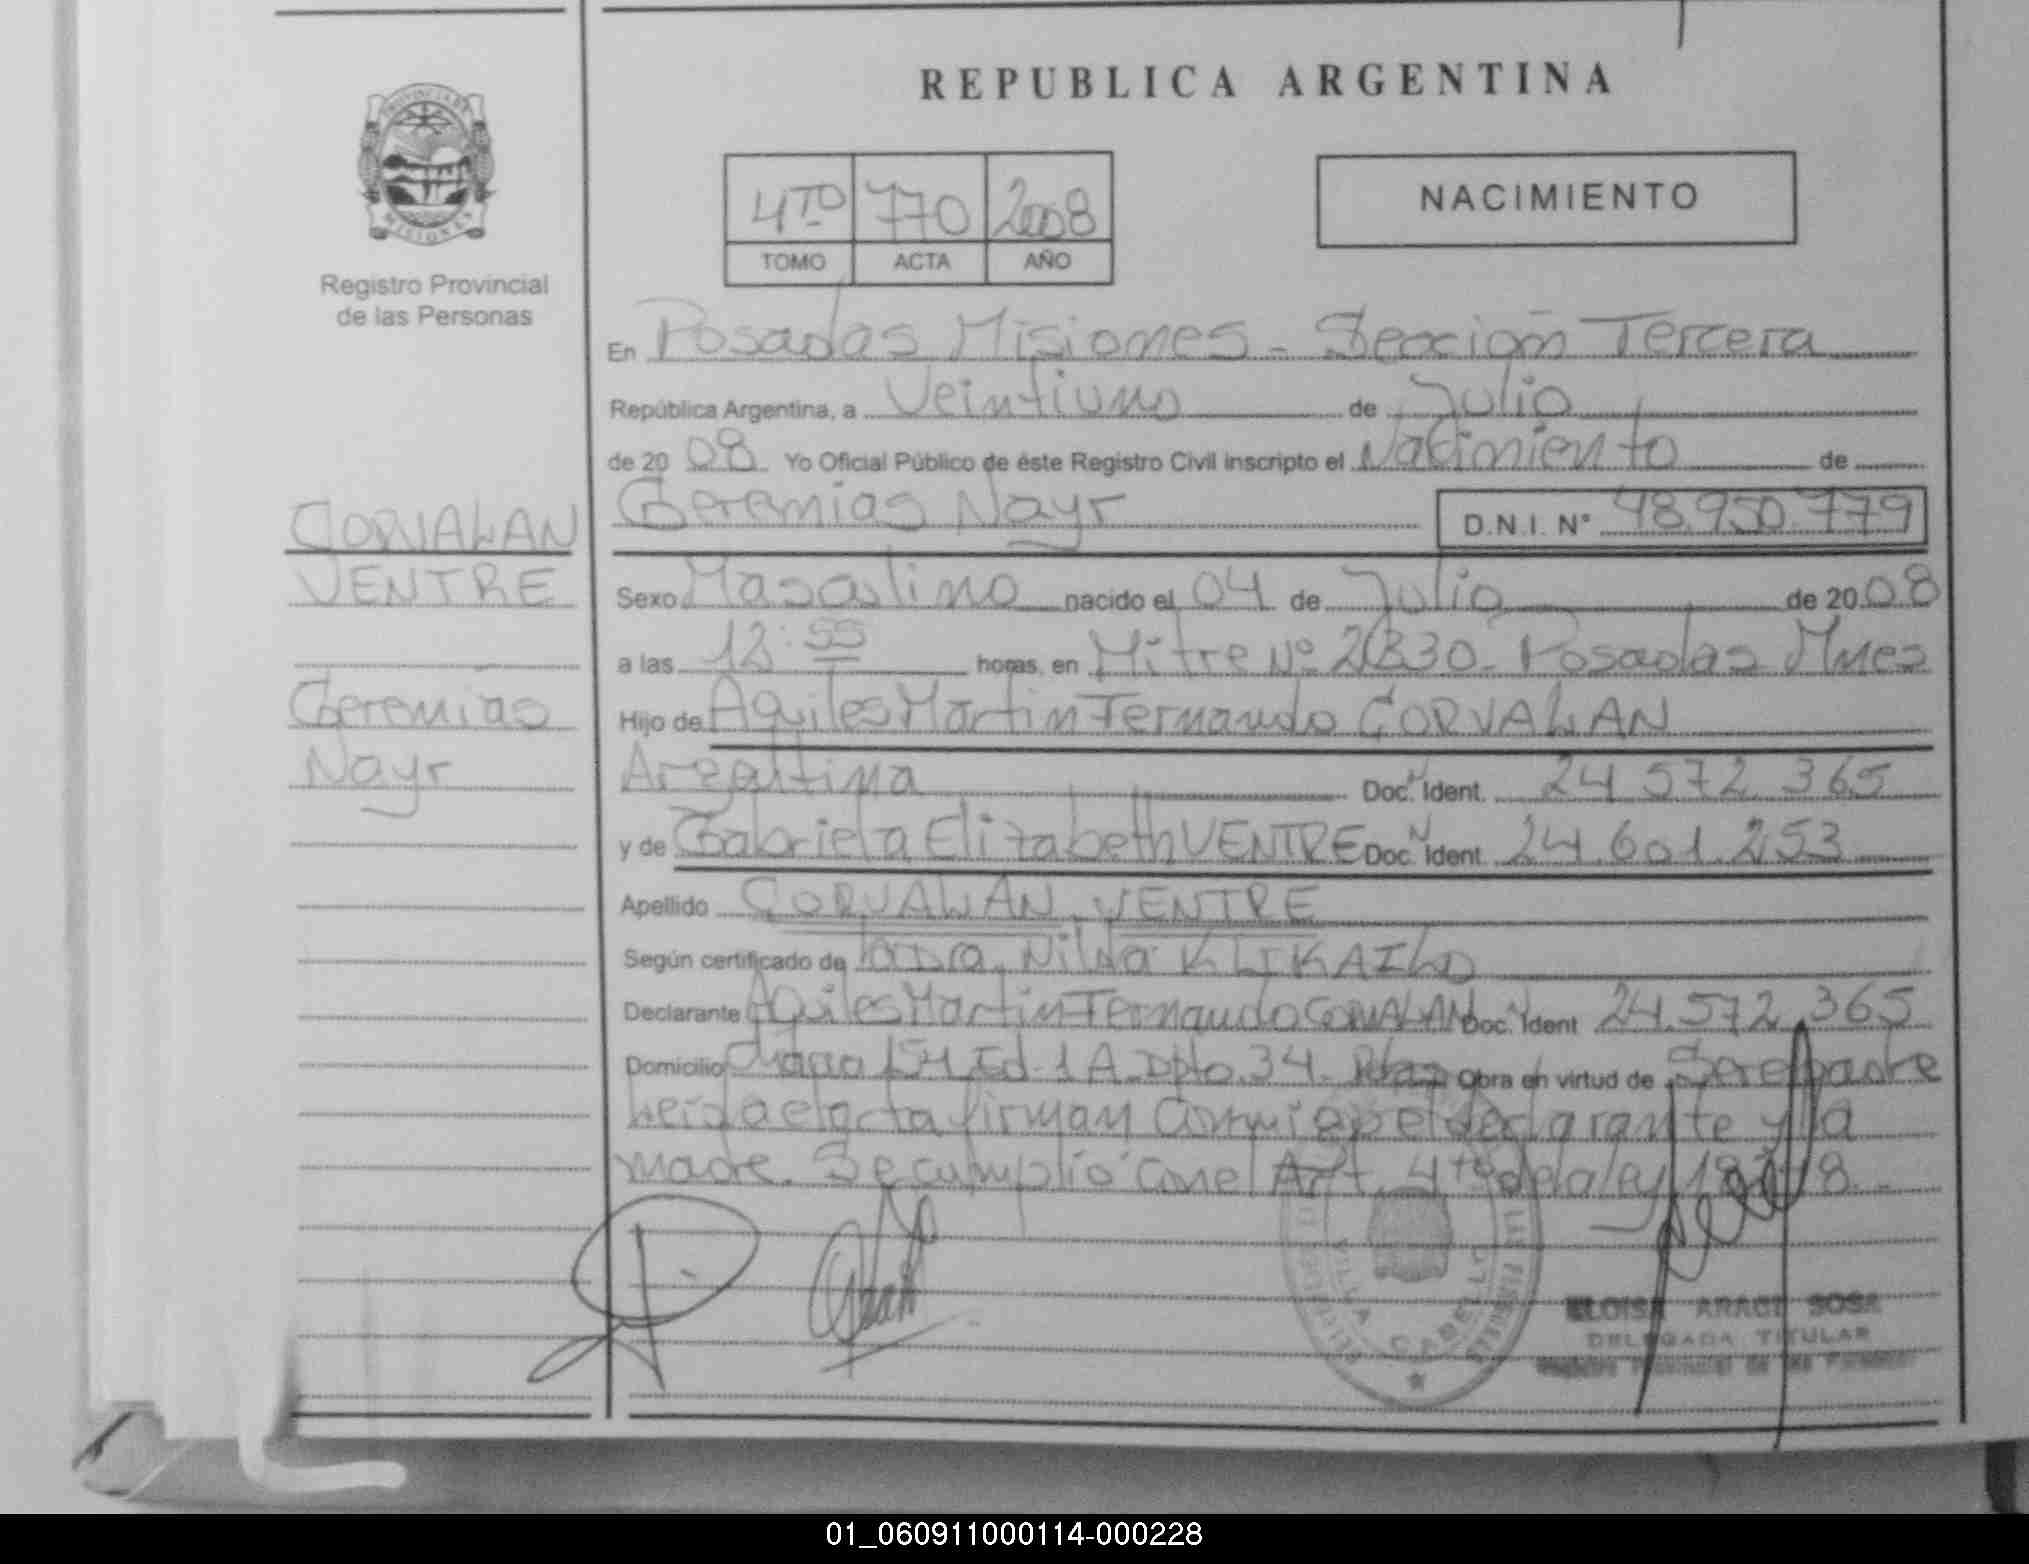 REPUBLICA ARGENTINA
PROVINCIA DE
MISIONES
Registro Provincial
de las Personas
4TO 770 2008
TOMO ACTA AÑO
NACIMIENTO
En Posadas Misiones - Sección Tercera
República Argentina, a Veintiuno de Julio
de 20 08 Yo Oficial Público de éste Registro Civil inscripto el Nacimiento de
Geremias Nayr D.N.I. N° 48.950.779
CORVALAN
VENTRE
Geremias
Nayr
Sexo Masculino nacido el 04 de Julio de 20 08
a las 12:55 horas, en Mitre Nº 2830 - Posadas Mnes
Hijo de Aquiles Martin Fernando CORVALAN
Argentina Doc. Ident. 24.572.365
y de Gabriela Elizabeth VENTRE Doc. Ident 24.601.253
Apellido CORVALAN VENTRE
Según certificado de la Dra. Nilda
Declarante Aquiles Martin Fernando CORVALAN Doc. Ident 24.572.365
Domicilio 154 Ed. 1A Dpto. 34 - Obra en virtud de Ser el padre
Leída el acta firman conmigo el declarante y la
madre. Se cumplió con el Art. 4to de la ley
VILLA CABELLO
ELOISA ARACI SOSA
DELEGADA TITULAR
Registro Provincial de las Personas
01_060911000114-000228